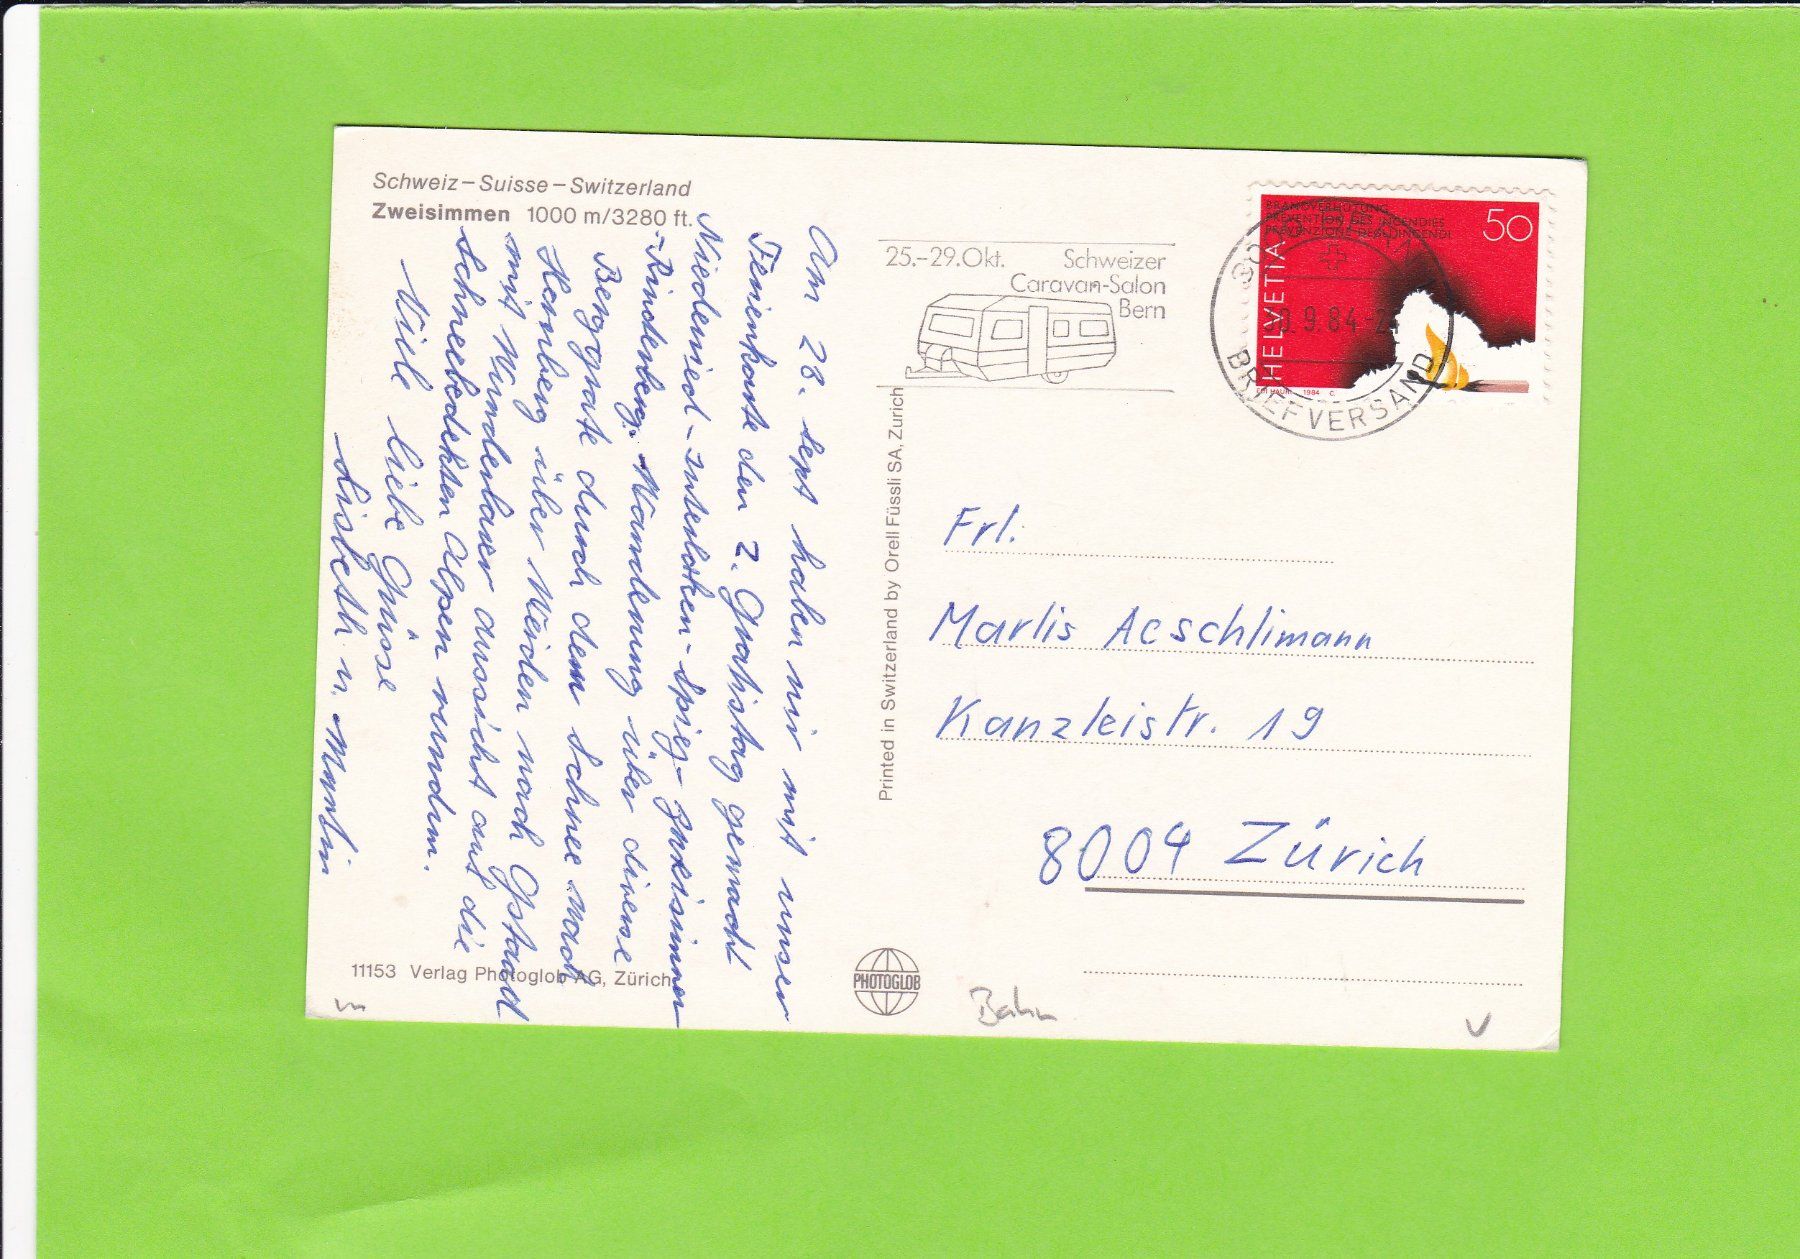 Schweiz–Suisse–Switzerland
Zweisimmen 1000 m/3280 ft.
Am 28. Sept haben wir mit unser
Ferienkarte den 2. Gratistag gemacht
Niederried-Interlaken-Spiez-Zweisimmen
-Rinderberg. Wanderung über diverse
Berggräte durch den Schnee nach
Hornberg über Weiden nach Gstaad
mit Wunderbarer Aussicht auf die
schneebedekten Alpen rundum.
Viele liebe Grüsse
Lisbeth u. Martin
11153 Verlag Photoglob AG, Zürich
Printed in Switzerland by Orell Füssli SA, Zurich
PHOTOGLOB
25.–29.Okt. Schweizer
Caravan-Salon
Bern
BRANDVERHÜTUNG
PRÉVENTION DES INCENDIES
PREVENZIONE DEGLI INCENDI
50
HELVETIA
1984
9.84
BRIEFVERSAND
Frl.
Marlis Aeschlimann
Kanzleistr. 19
8004 Zürich
Bahn